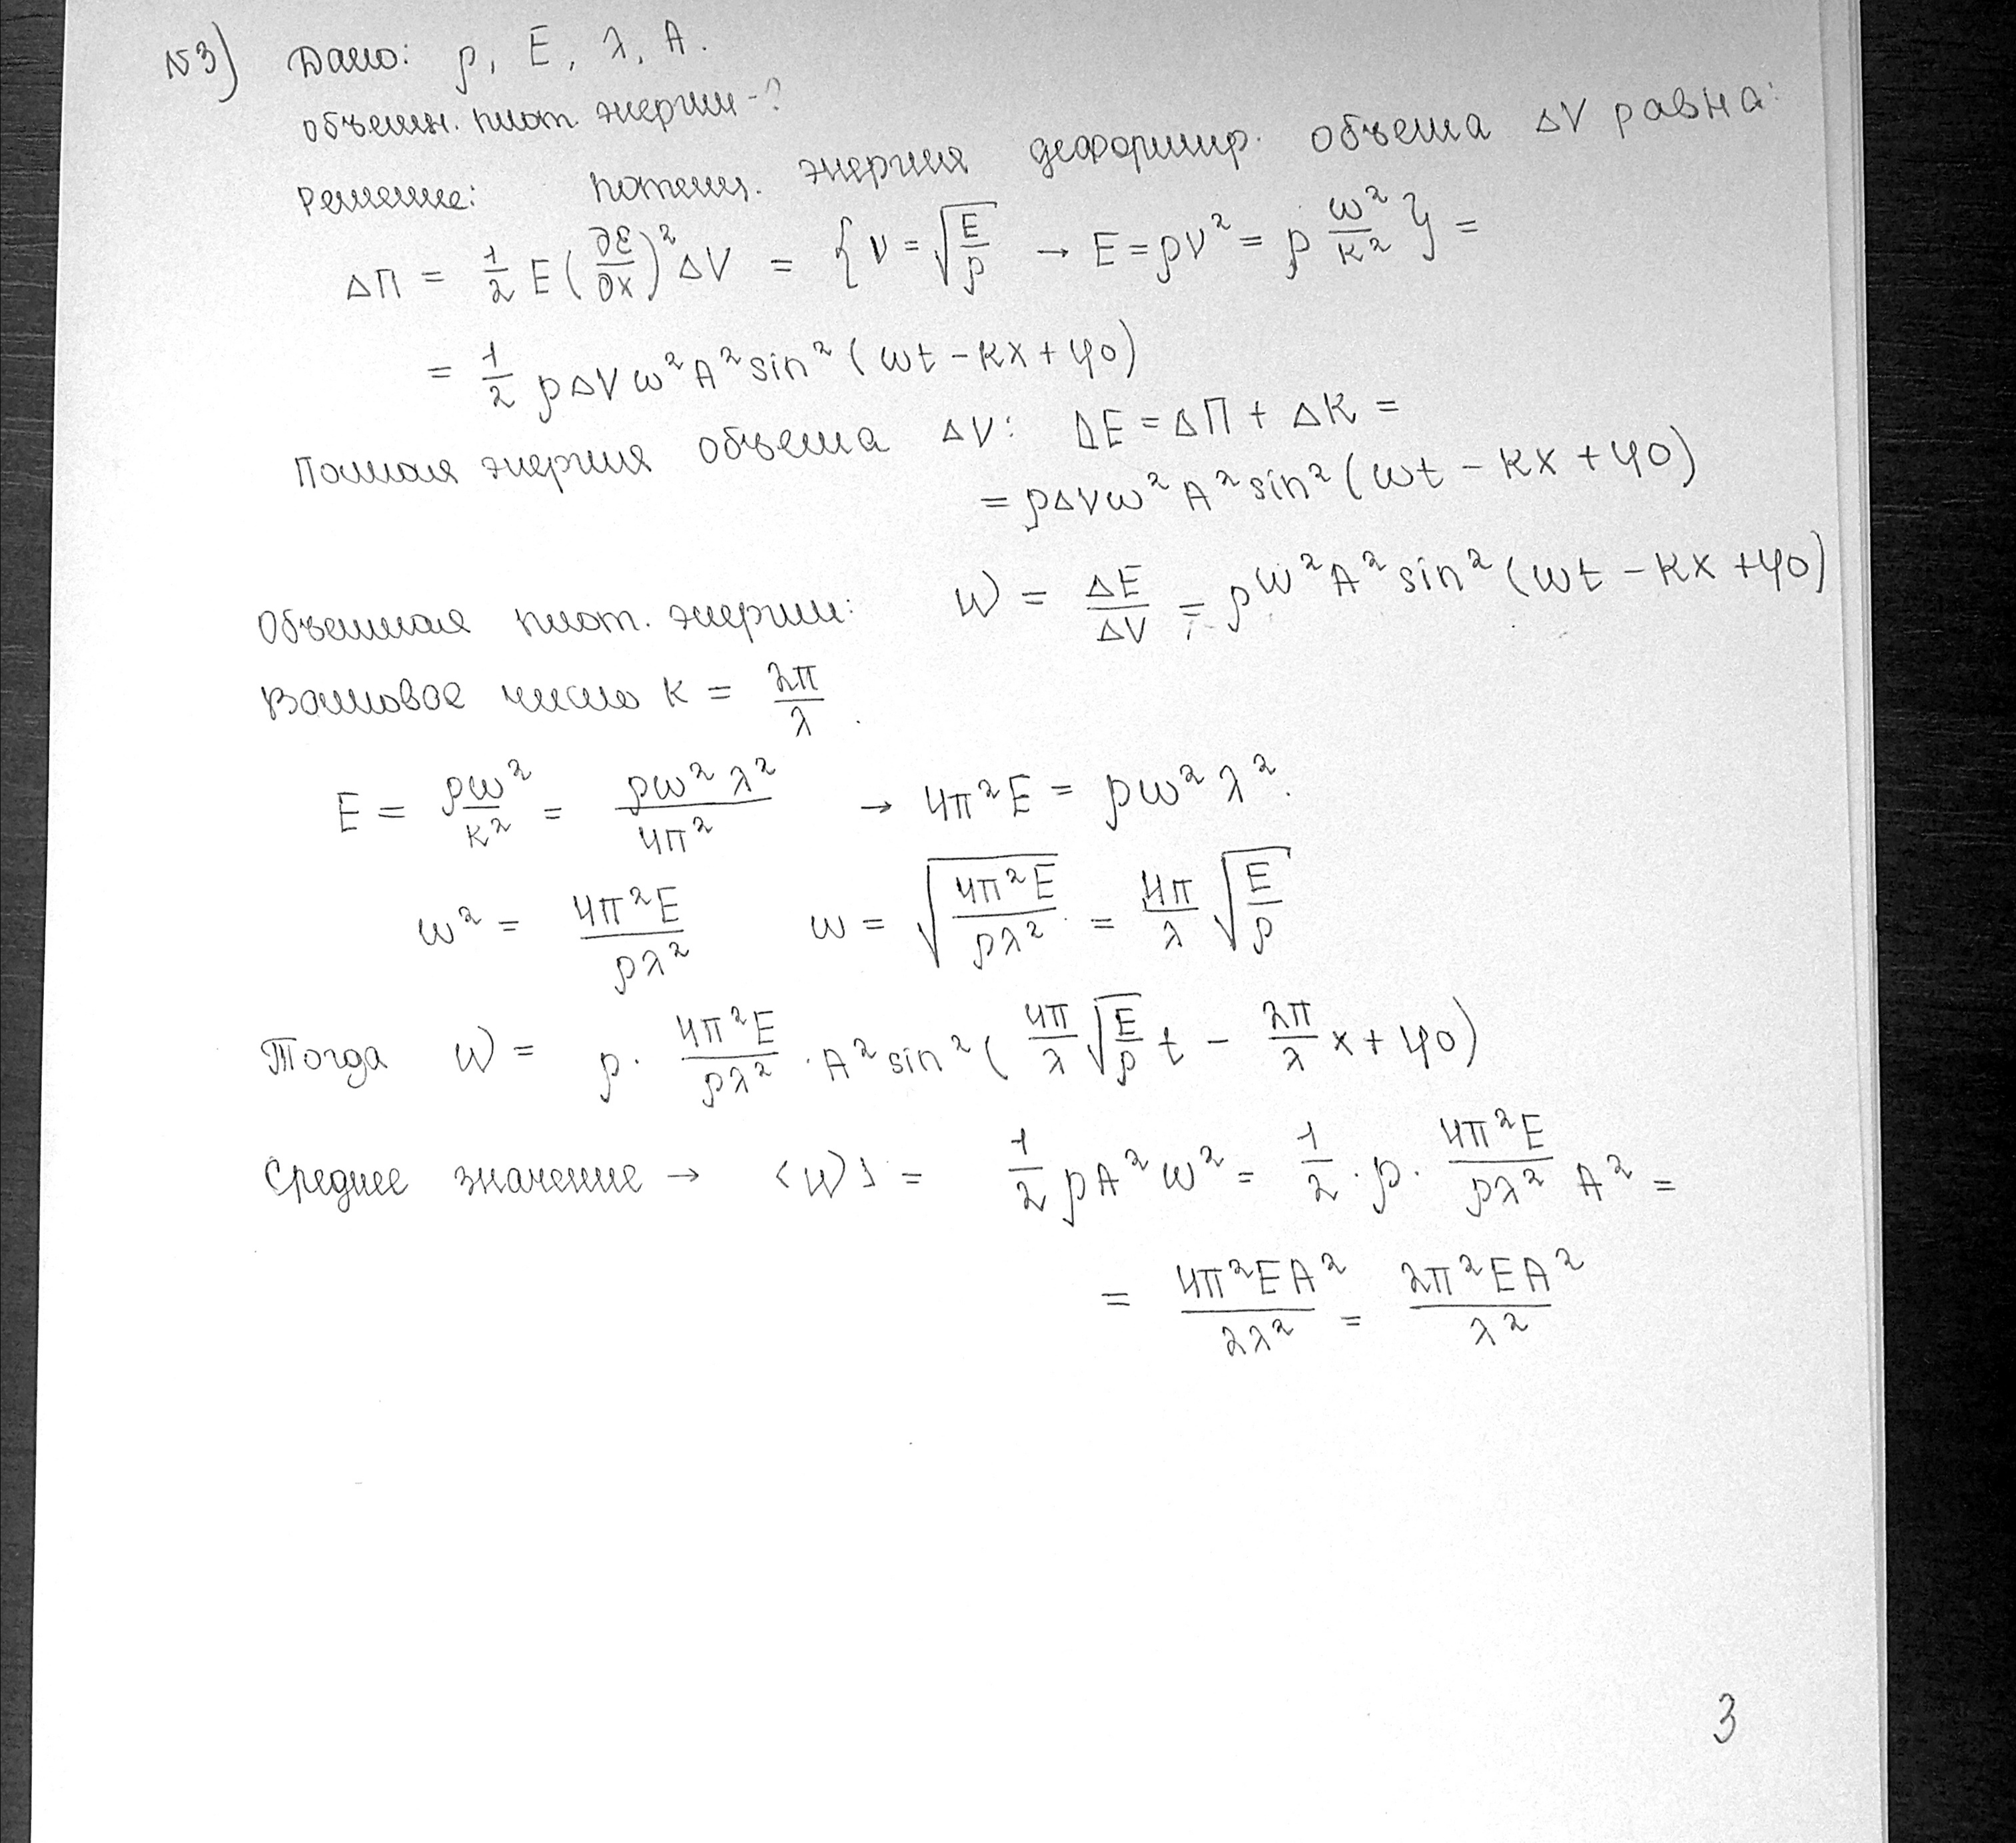 №3) Дано: ρ, E, λ, A.
объемн. плот. энергии - ?
Решение: потенц. энергия деформир. объема ΔV равна:
ΔП = 1/2 E (∂ε/∂x)² ΔV = {v = √(E/ρ) → E = ρv² = ρ ω²/k²} =
= 1/2 ρΔVω²A² sin²(ωt - kx + φ0)
Полная энергия объема ΔV: ΔE = ΔП + ΔK =
= ρΔVω²A² sin²(ωt - kx + φ0)
Объемная плот. энергии: W = ΔE/ΔV = ρω²A² sin²(ωt - kx + φ0)
Волновое число k = 2π/λ.
E = ρω²/k² = ρω²λ²/4π² → 4π²E = ρω²λ².
ω² = 4π²E/ρλ² ω = √(4π²E/ρλ²) = 4π/λ √(E/ρ)
Тогда W = ρ · 4π²E/ρλ² · A² sin²(4π/λ √(E/ρ) t - 2π/λ x + φ0)
Среднее значение → <W> = 1/2 ρA²ω² = 1/2 · ρ · 4π²E/ρλ² A² =
= 4π²EA²/2λ² = 2π²EA²/λ²
3